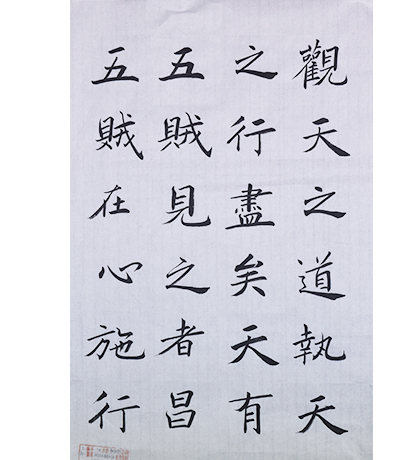 觀天之道執天
之行盡矣天有
五賊見之者昌
五賊在心施行